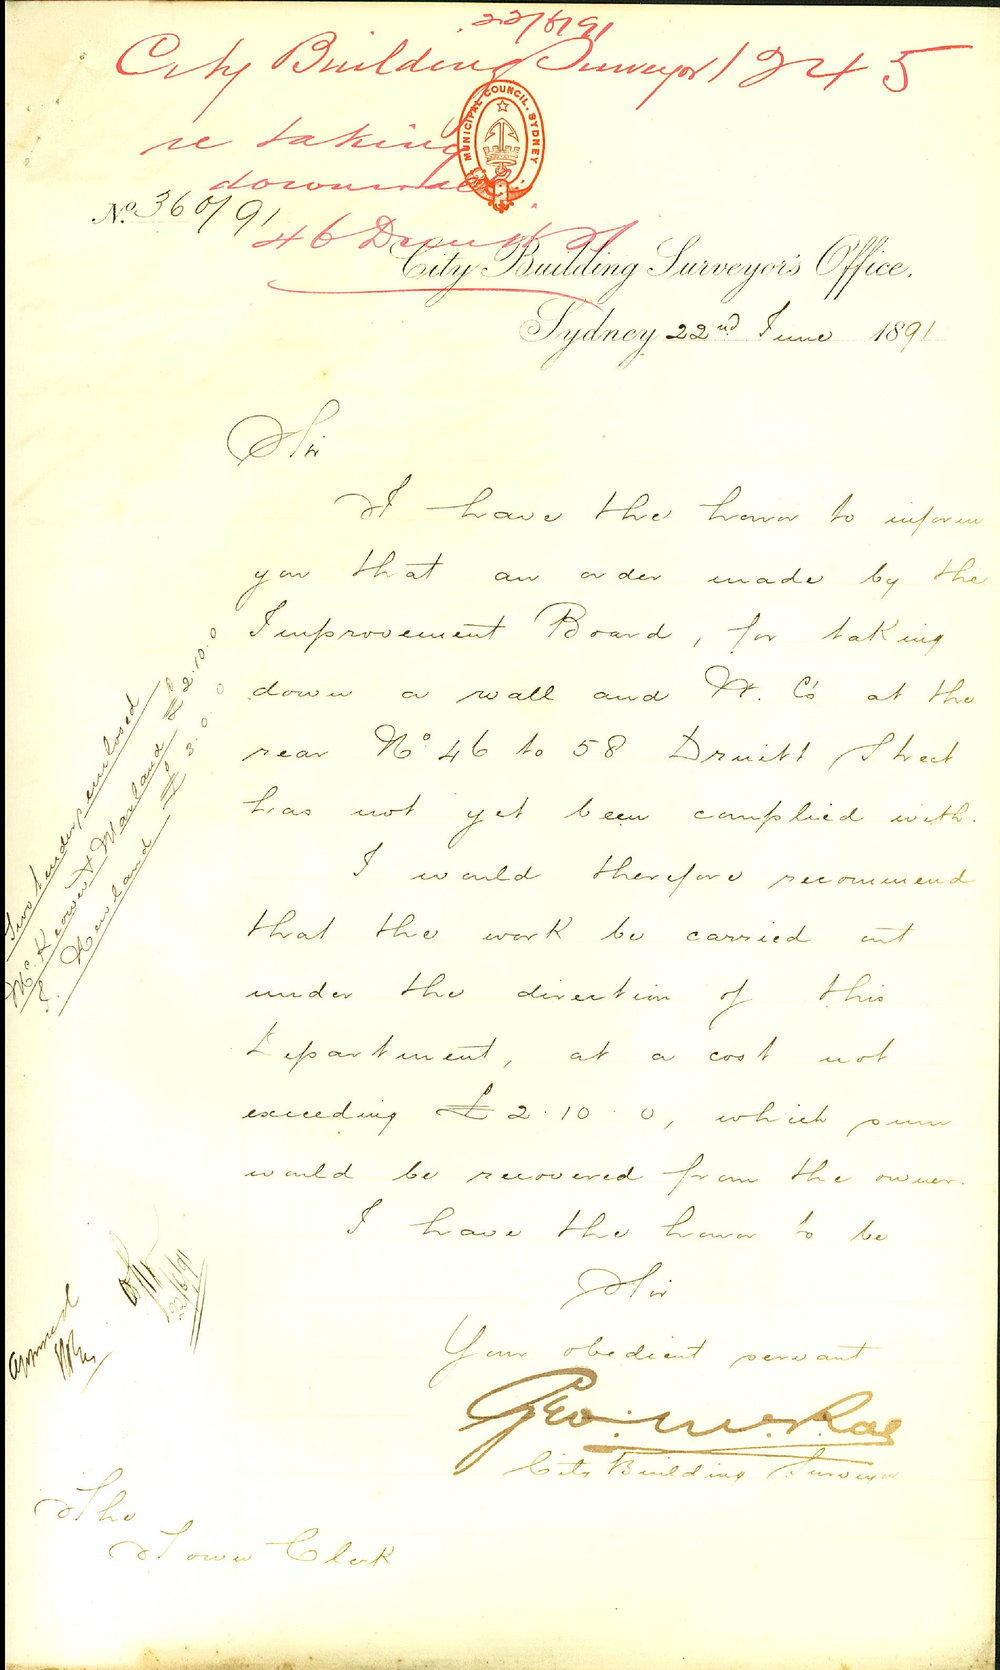 22/6/91
City Building Surveyor 1245
MUNICIPAL COUNCIL. SYDNEY
re taking
down wall
No. 360/91
46 Druitt St
City Building Surveyor's Office,
Sydney 22nd June 1891
Sir
I have the honor to inform
you that an order made by the
Improvement Board, for taking
down a wall and W. Cs at the
rear No 46 to 58 Druitt Street
has not yet been complied with.
I would therefore recommend
that the work be carried out
under the direction of this
Department, at a cost not
exceeding £2.10.0, which sum
would be recovered from the owner.
I have the honor to be
Sir
Your obedient servant
Geo. McRae
City Building Surveyor
The
Town Clerk
Two tenders enclosed
McKeown & Marland £2.10.0
J. Newland £3.0.0
approved
22/6/91